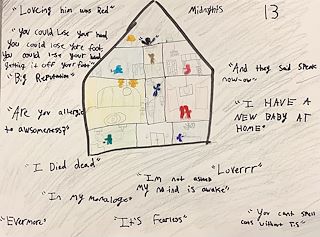 "Loveing him was Red"
Midnights
13
"you could lose your hand
you could lose your foot,
you could lose your hand
getting it off your foot"
"Big Reputation"
"And they said speak
now-ow"
"Are you allergic
to awsomeness?"
"I HAVE A
NEW BABY AT
HOME"
"I Died dead"
"I'm not asleep
My mind is awake"
"Loverrr"
"In my monalogo"
"Evermore"
"It's Fearless"
"You cant spell
cats without T.S"